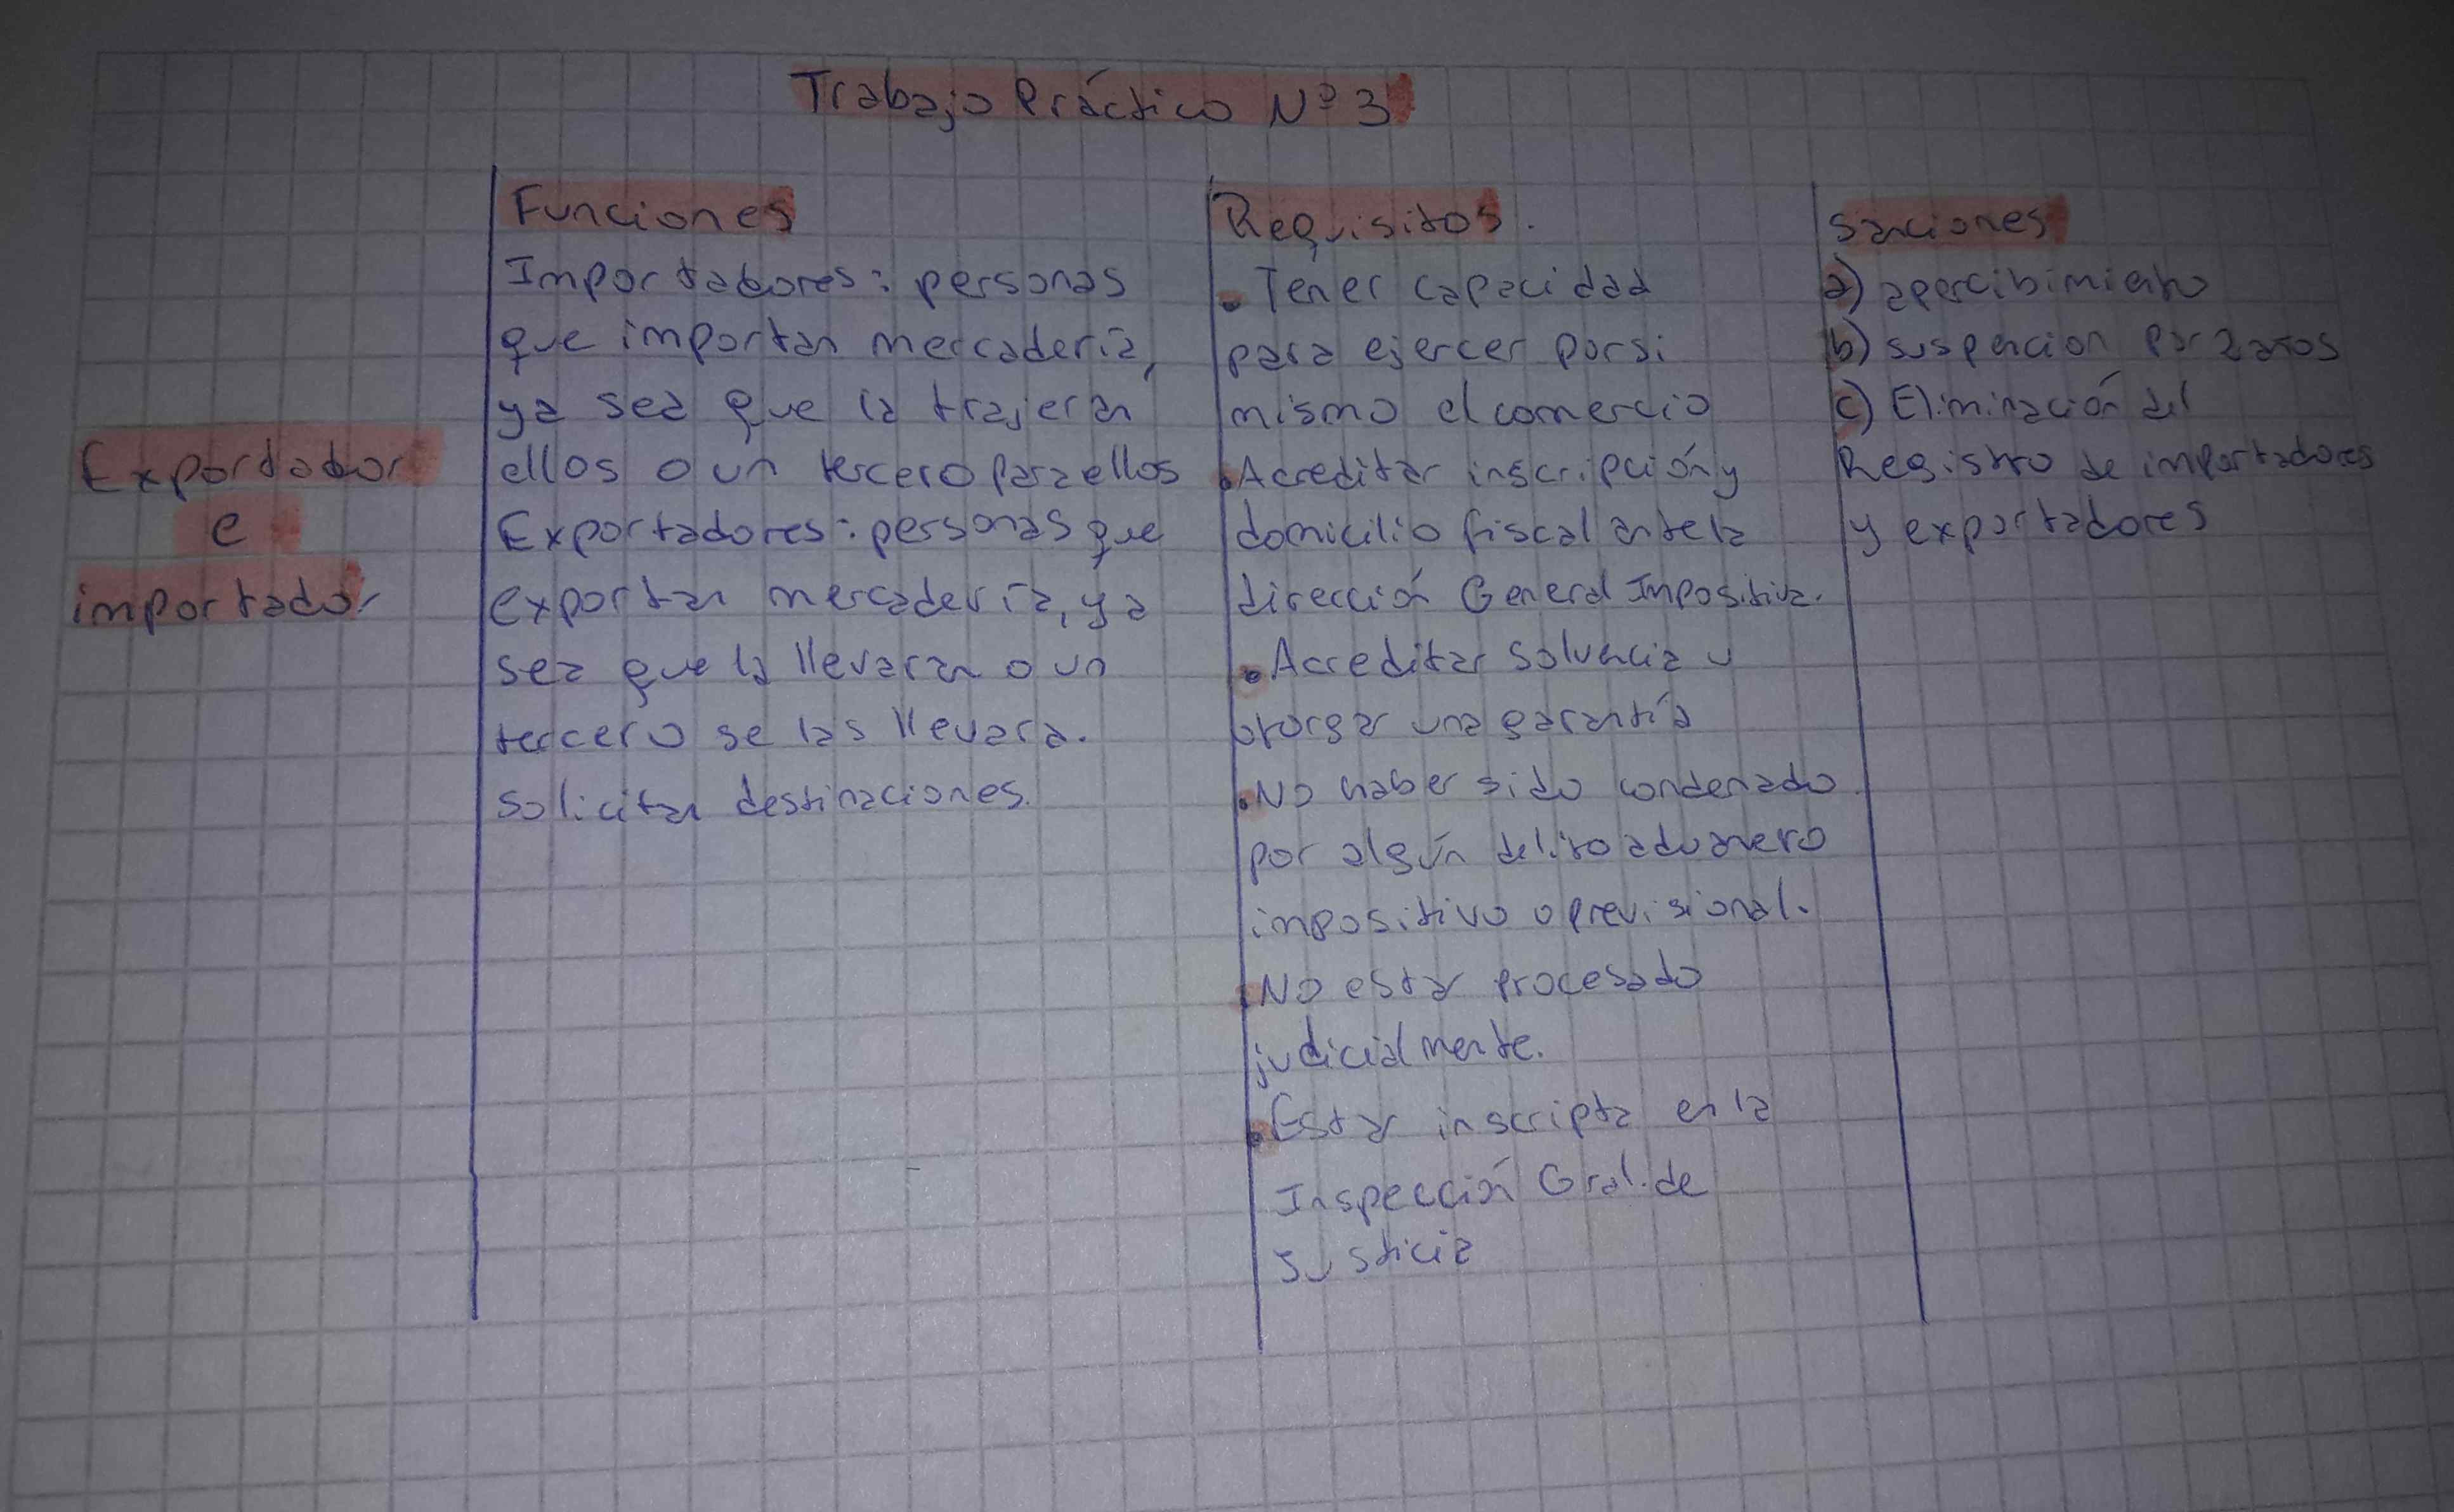 Trabajo Práctico Nº 3
Exportador
e
importador
Funciones
Importadores: personas
que importan mercadería,
ya sea que la trajeran
ellos o un tercero para ellos
Exportadores: personas que
exportan mercadería, ya
sea que la llevaran o un
tercero se las llevara.
solicitan destinaciones.
Requisitos.
• Tener capacidad
para ejercer por si
mismo el comercio
• Acreditar inscripción y
domicilio fiscal ante la
dirección General Impositiva.
• Acreditar solvencia u
otorgar una garantía
• No haber sido condenado
por algún delito aduanero
impositivo o previsional.
• No estar procesado
judicialmente.
• Estar inscripta en la
Inspección Gral. de
Justicia
Sanciones
a) apercibimiento
b) suspencion por 2 años
c) Eliminación del
Registro de importadores
y exportadores